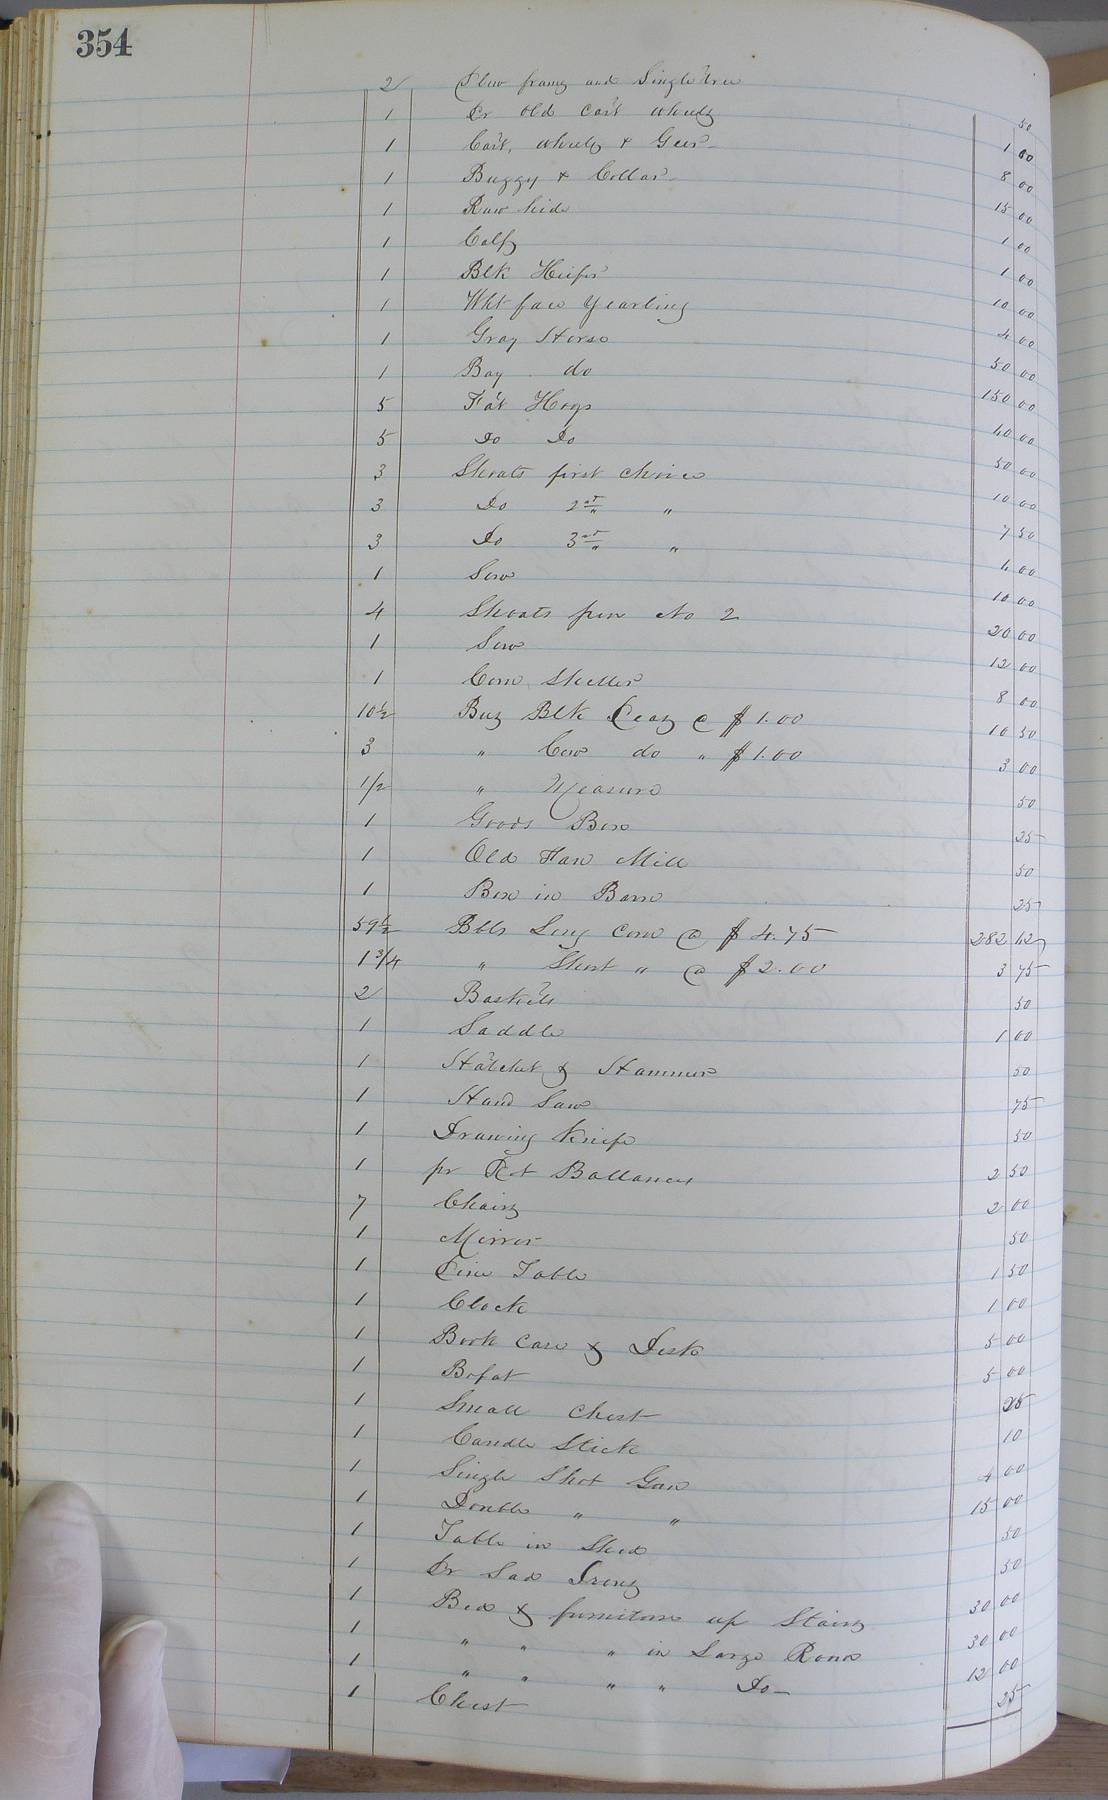 354
2 Plow frames and Singletree 50
1 Pr old cart wheels 1 00
1 Cart, wheels & Gear 8 00
1 Buggy & Collar 15 00
1 Raw hide 1 00
1 Calf 1 00
1 Blk Heifer 10 00
1 Wht face Yearling 4 00
1 Gray Horse 50 00
1 Bay do 150 00
5 Fat Hogs 40 00
5 Do Do 50 00
3 Shoats first choice 10 00
3 Do 2nd " 7 50
3 Do 3rd " 4 00
1 Sow 10 00
4 Shoats pen No 2 20 00
1 Sow 12 00
1 Corn Sheller 8 00
10½ Bus Blk Peas @ $1.00 10 50
3 " Cow do " $1.00 3 00
1/2 " Measure 50
1 Goods Box 25
1 Old Fan Mill 50
1 Box in Barn 25
59½ Bbls Long Corn @ $4.75 282 62
1 3/4 " Short " @ $2.00 3 75
2 Baskets 50
1 Saddle 1 00
1 Hatchet & Hammer 50
1 Hand Saw 75
1 Drawing Knife 50
1 pr Pat Ballances 2 50
7 Chairs 2 00
1 Mirror 50
1 Pine Table 1 50
1 Clock 1 00
1 Book Case & Desk 5 00
1 Bofat 5 00
1 Small Chest 25
1 Candle Stick 10
1 Single Shot Gun 4 00
1 Double " " 15 00
1 Table in Shed 50
1 Pr Sad Irons 50
1 Bed & furniture up Stairs 30 00
1 " " " in Large Room 30 00
1 " " " " Do 12 00
1 Chest 25